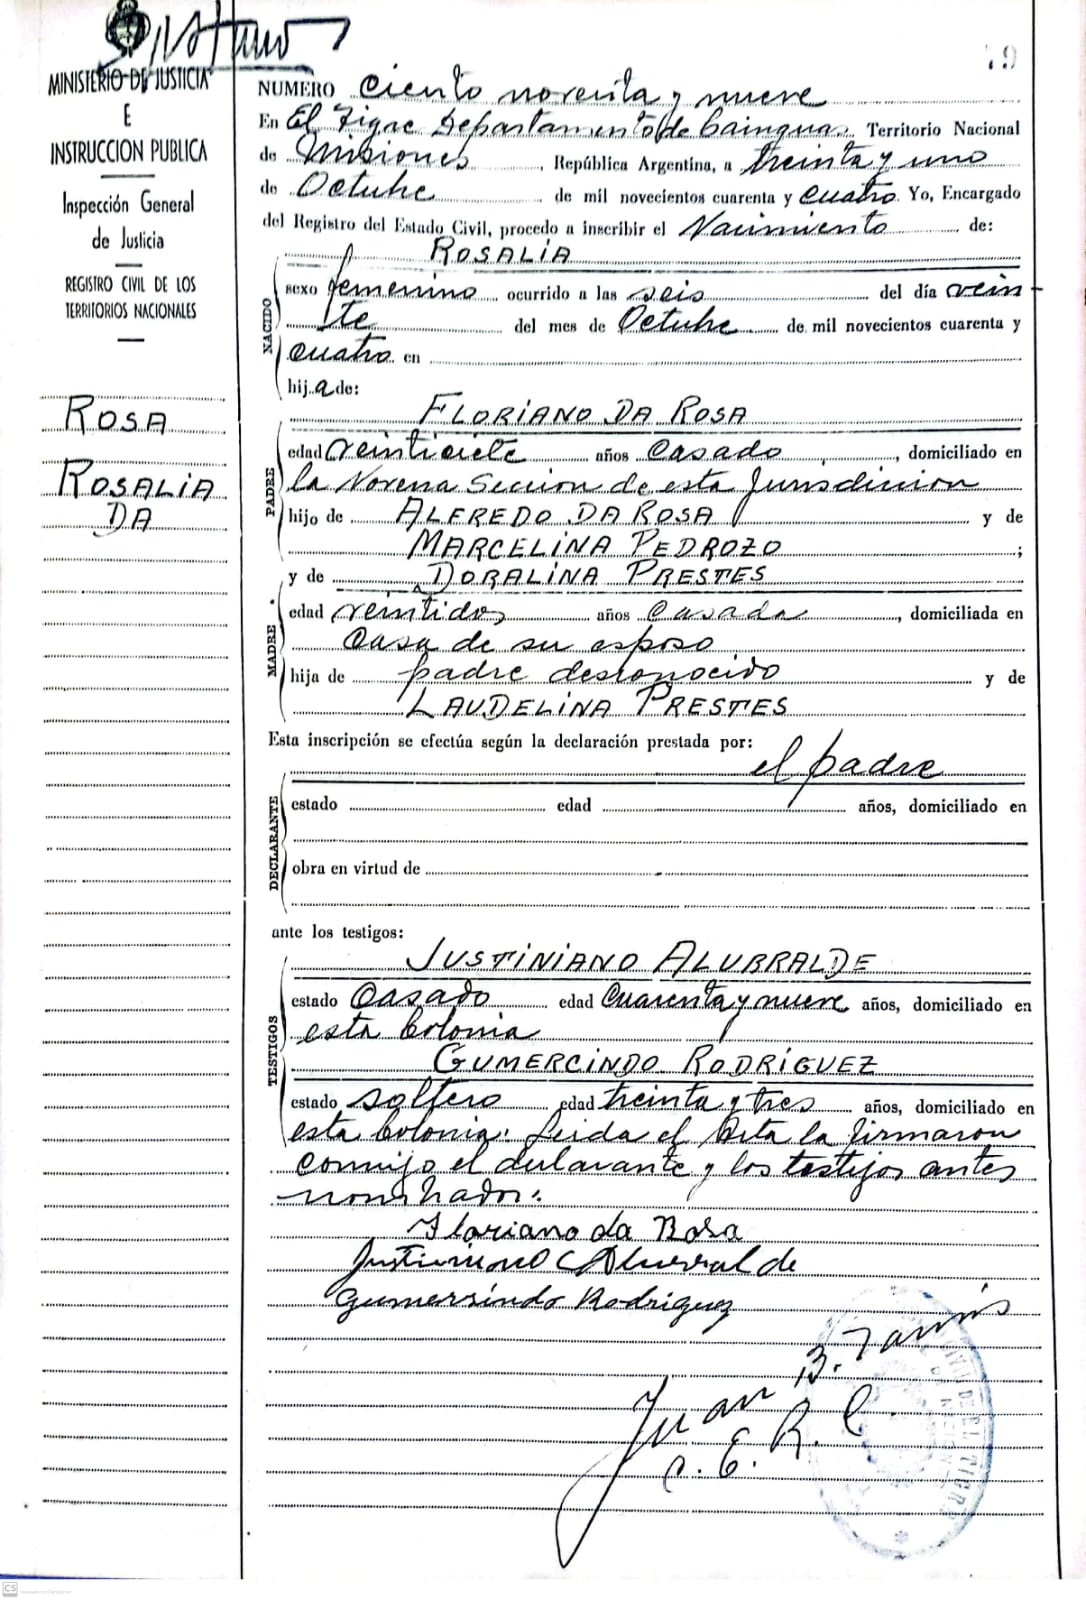 MINISTERIO DE JUSTICIA
E
INSTRUCCION PUBLICA
Inspección General
de Justicia
REGISTRO CIVIL DE LOS
TERRITORIOS NACIONALES
ROSA
ROSALIA
DA
79
NUMERO Ciento noventa y nueve
En El Tigre Departamento de Cainguas Territorio Nacional
de Misiones, República Argentina, a treinta y uno
de Octubre de mil novecientos cuarenta y cuatro. Yo, Encargado
del Registro del Estado Civil, procedo a inscribir el Nacimiento de:
ROSALIA
NACIDO
sexo femenino ocurrido a las seis del día vein-
te del mes de Octubre de mil novecientos cuarenta y
cuatro en
hija de:
FLORIANO DA ROSA
PADRE
edad veinticiete años Casado, domiciliado en
la Novena Sección de esta Jurisdicción
hijo de ALFREDO DA ROSA y de
MARCELINA PEDROZO;
y de DORALINA PRESTES
MADRE
edad veintidos años Casada, domiciliada en
Casa de su esposo
hija de padre desconocido y de
LAUDELINA PRESTES
Esta inscripción se efectúa según la declaración prestada por:
el padre
DECLARANTE
estado edad años, domiciliado en
obra en virtud de
ante los testigos:
JUSTINIANO ALURRALDE
TESTIGOS
estado Casado edad Cuarenta y nueve años, domiciliado en
esta Colonia
GUMERCINDO RODRIGUEZ
estado soltero edad treinta y tres años, domiciliado en
esta Colonia. Leida el Acta la firmaron
conmigo el declarante y los testijos antes
nombrados.
Floriano da Rosa
Justiniano Alurralde
Gumersindo Rodriguez
Juan B.
E. R. C.
CS